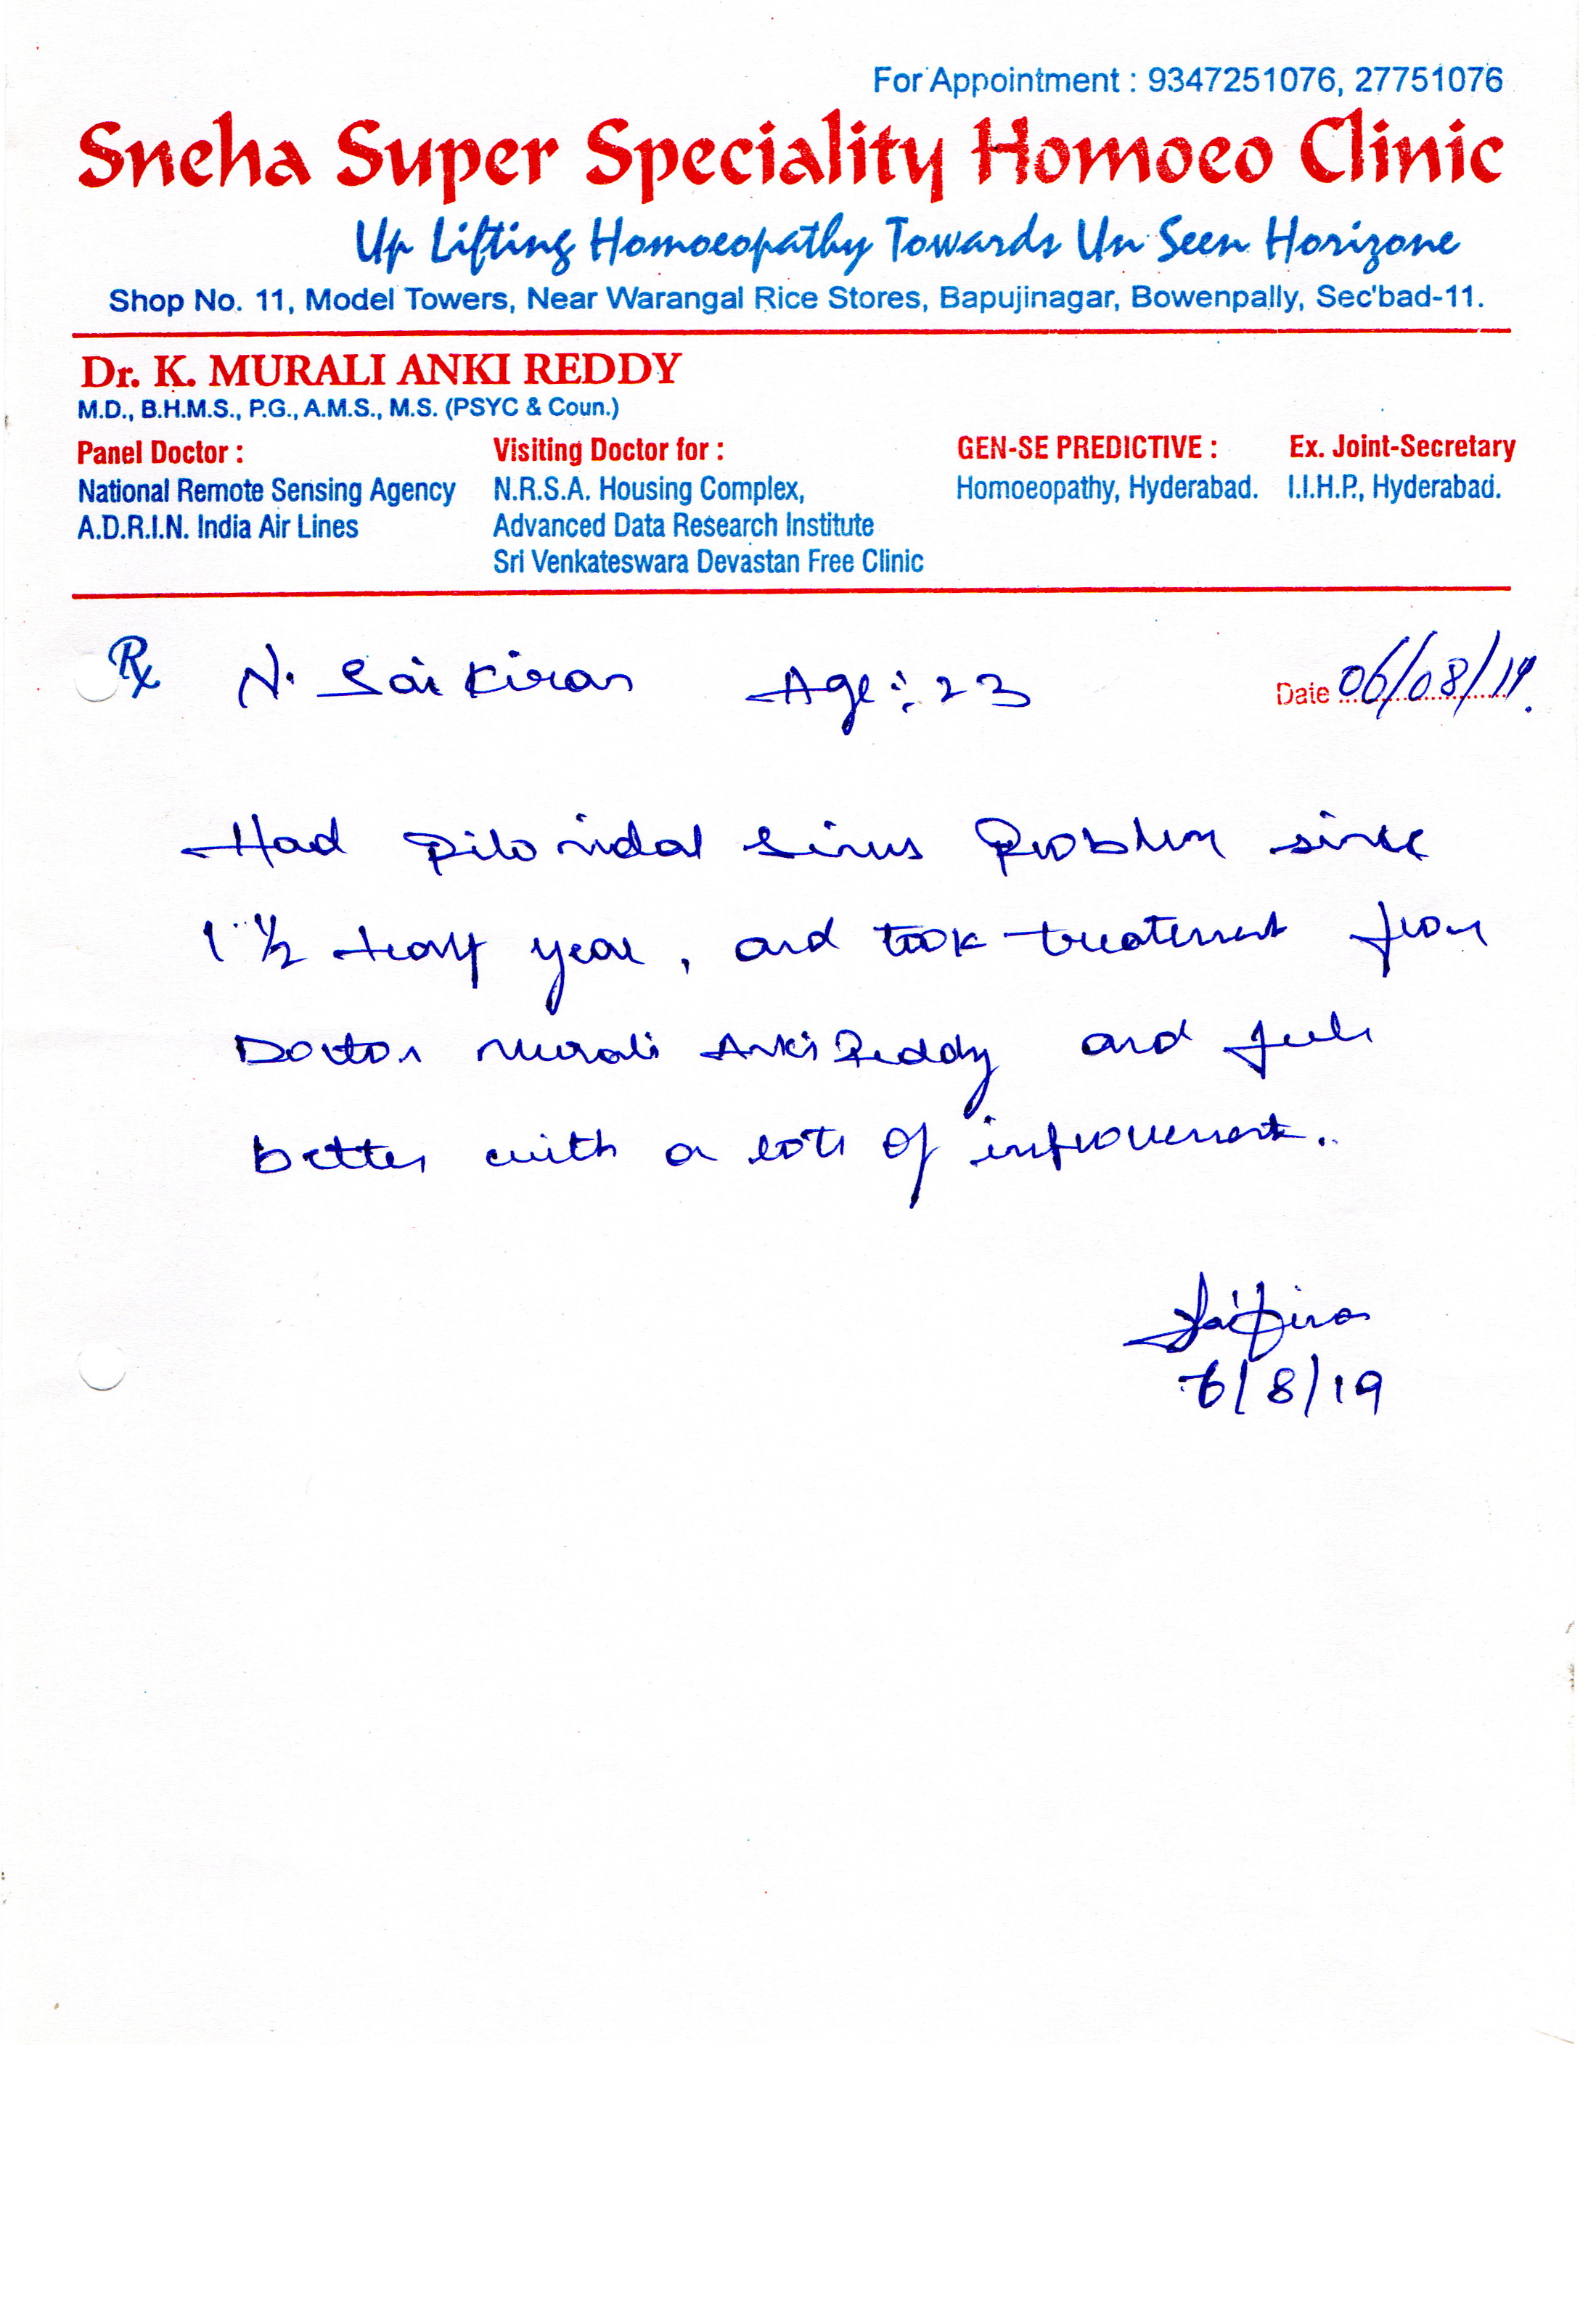 For Appointment : 9347251076, 27751076
Sneha Super Speciality Homoeo Clinic
Up Lifting Homoeopathy Towards Un Seen Horizone
Shop No. 11, Model Towers, Near Warangal Rice Stores, Bapujinagar, Bowenpally, Sec'bad-11.
Dr. K. MURALI ANKI REDDY
M.D., B.H.M.S., P.G., A.M.S., M.S. (PSYC & Coun.)
Panel Doctor :
National Remote Sensing Agency
A.D.R.I.N. India Air Lines
Visiting Doctor for :
N.R.S.A. Housing Complex,
Advanced Data Research Institute
Sri Venkateswara Devastan Free Clinic
GEN-SE PREDICTIVE :
Homoeopathy, Hyderabad.
Ex. Joint-Secretary
I.I.H.P., Hyderabad.
Rx N. Sai Kiran Age : 23 Date 06/08/19.
Had pilonidal sinus Problem since
1 1/2 year, and took treatement from
Doctor Murali Anki Reddy and feels
better with a lots of improvement.
Saikiran
6/8/19